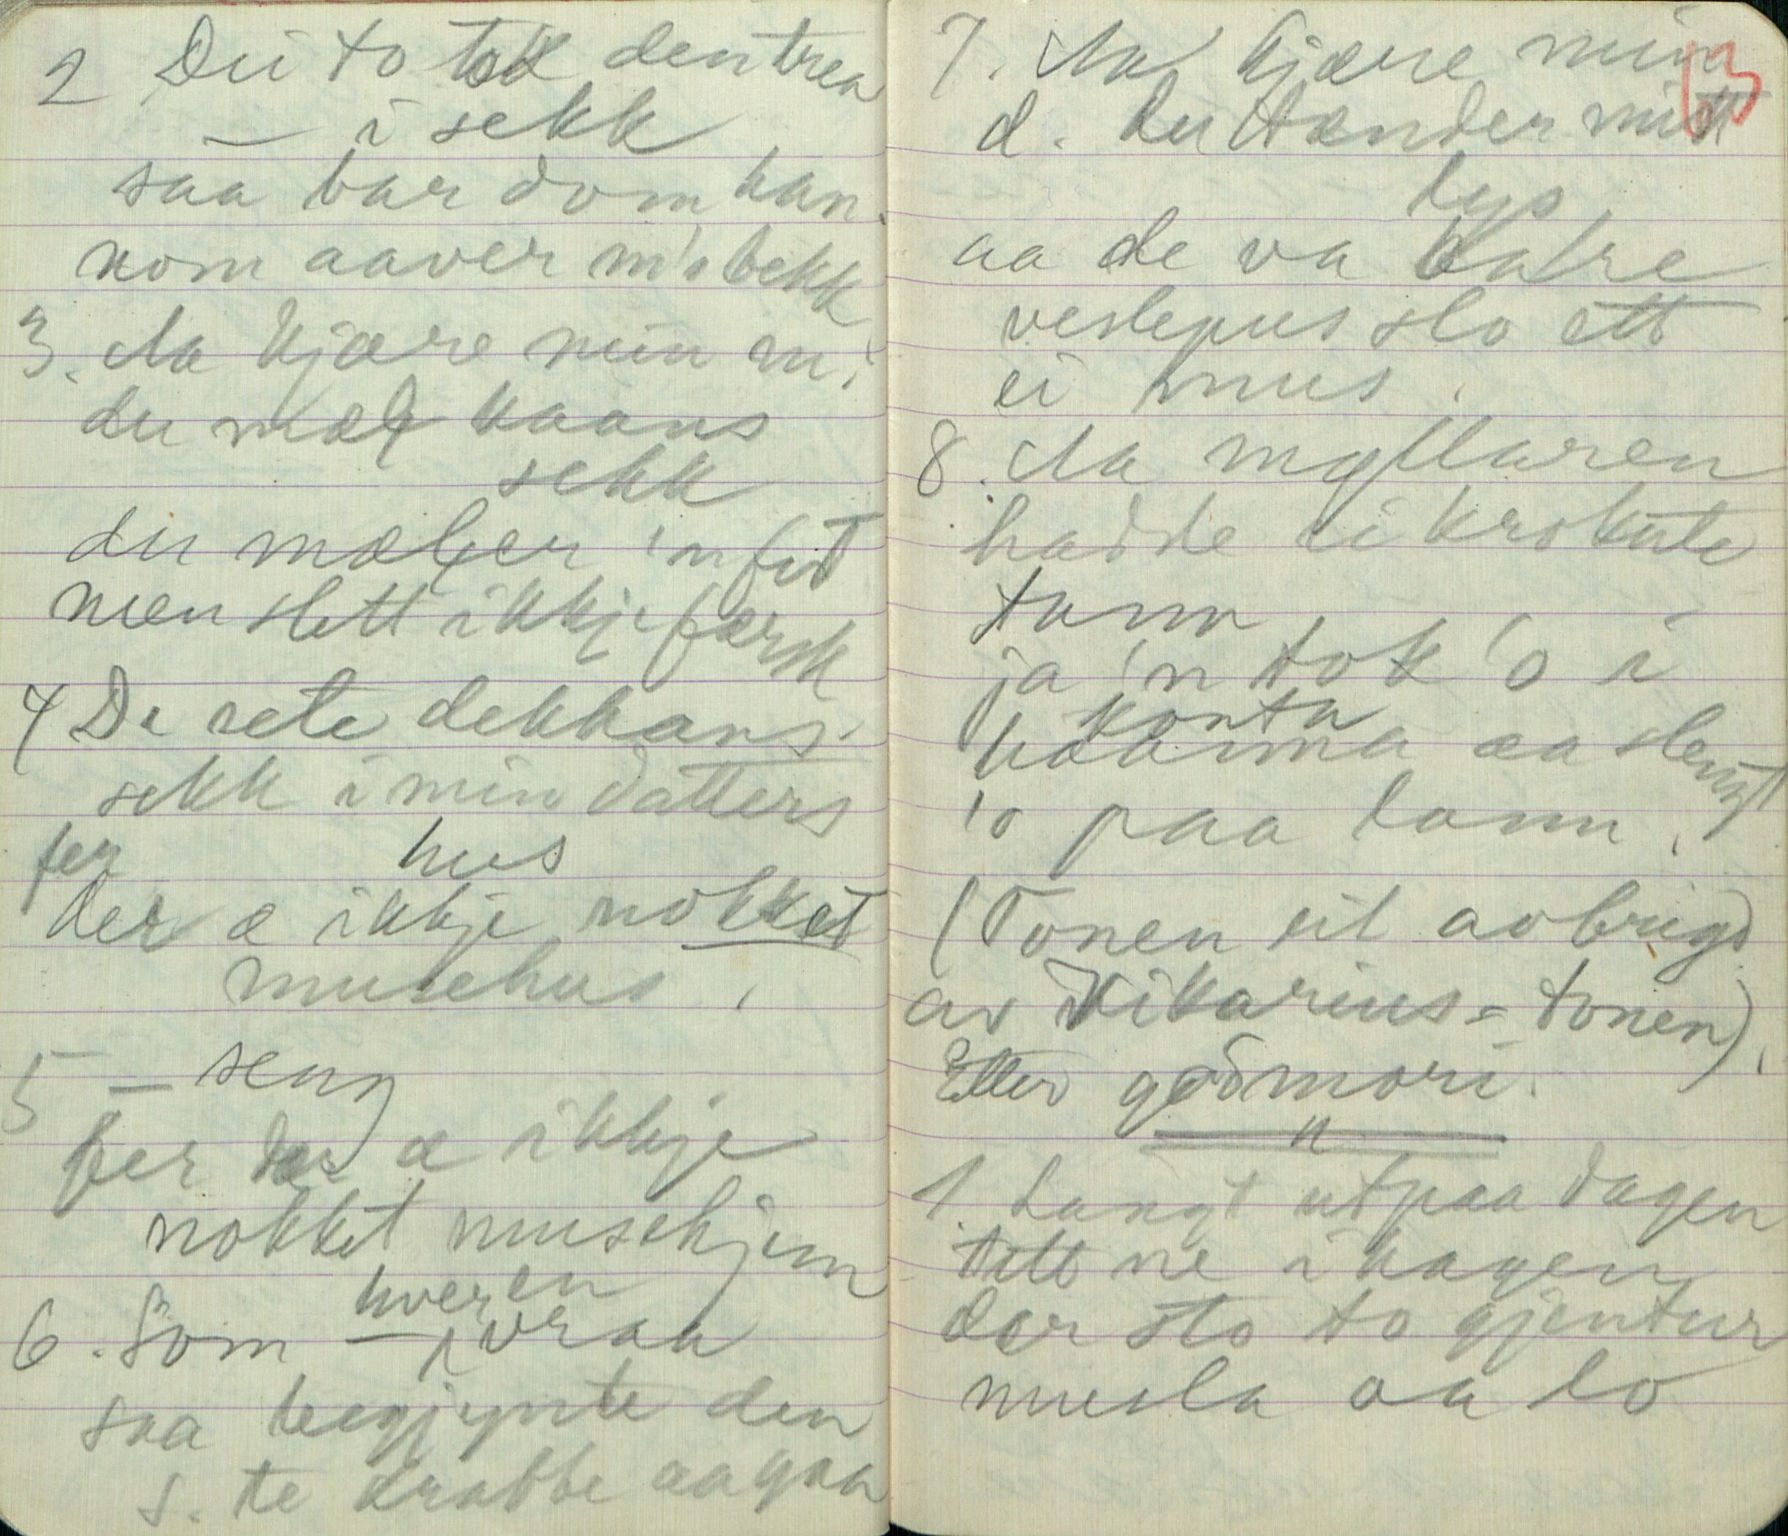 2 Dei to tok den trea
— i sekk
saa bar dom han-
nom aaver m's bekk
3. Aa kjære min m.
du mæl kaans
sekk
du mæler 'n fit
men slett ikkje færsk
4 De sete dekkans
sekk i min datters
hus
fer
der æ ikkje nokket
musehus.
5 — seng
fer der æ ikkje
nokket musehjem
hveren
6. Som — i vraa
saa beegjynte den
s. te krabbe aa gaa
7. Aa kjære min 13
d. du tænder mitt
lys
aa de va bare
veslepus slo ett
ei mus.
8. Aa myllaren
hadde ei krokute
tann
ja 'n tok 'o i
konta
haanna aa slengt
'o paa lann.
(Tonen eit avbrigd
av Vikarius-tonen).
Etter godmori.
"
1. Langt utpaa dagen
tett ne i hagen
der sto to gjentur
musla aa lo